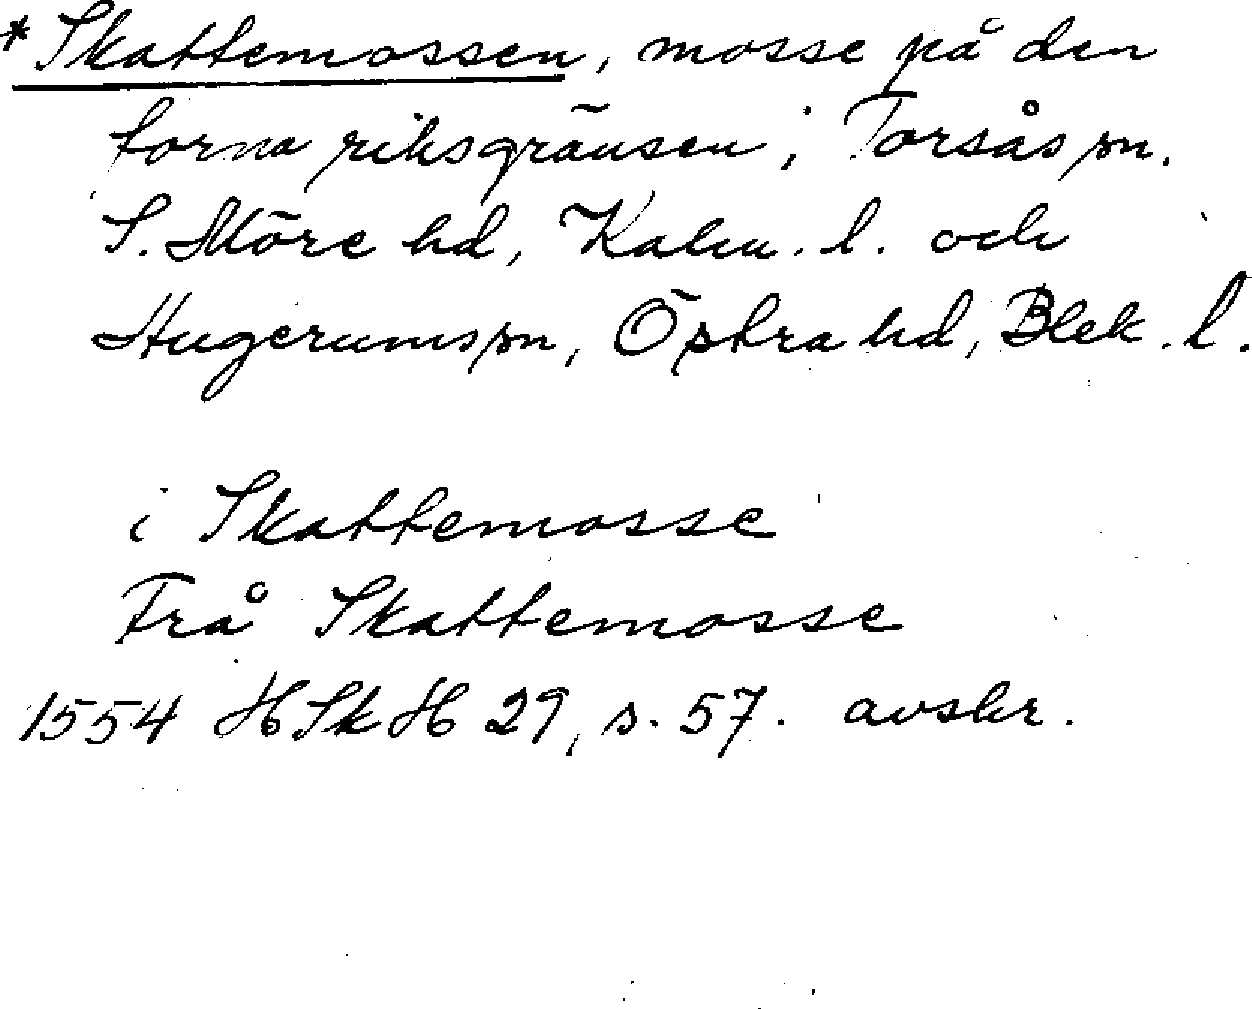 *Skattemossen, mosse på den
forna riksgränsen i Torsås sn.
S. Möre hd, Kalm. l. och
Hugerums sn, Östra hd, Blek. l.
i Skattemosse
Frå Skattemosse
1554 HSkH 29, s. 57. avskr.